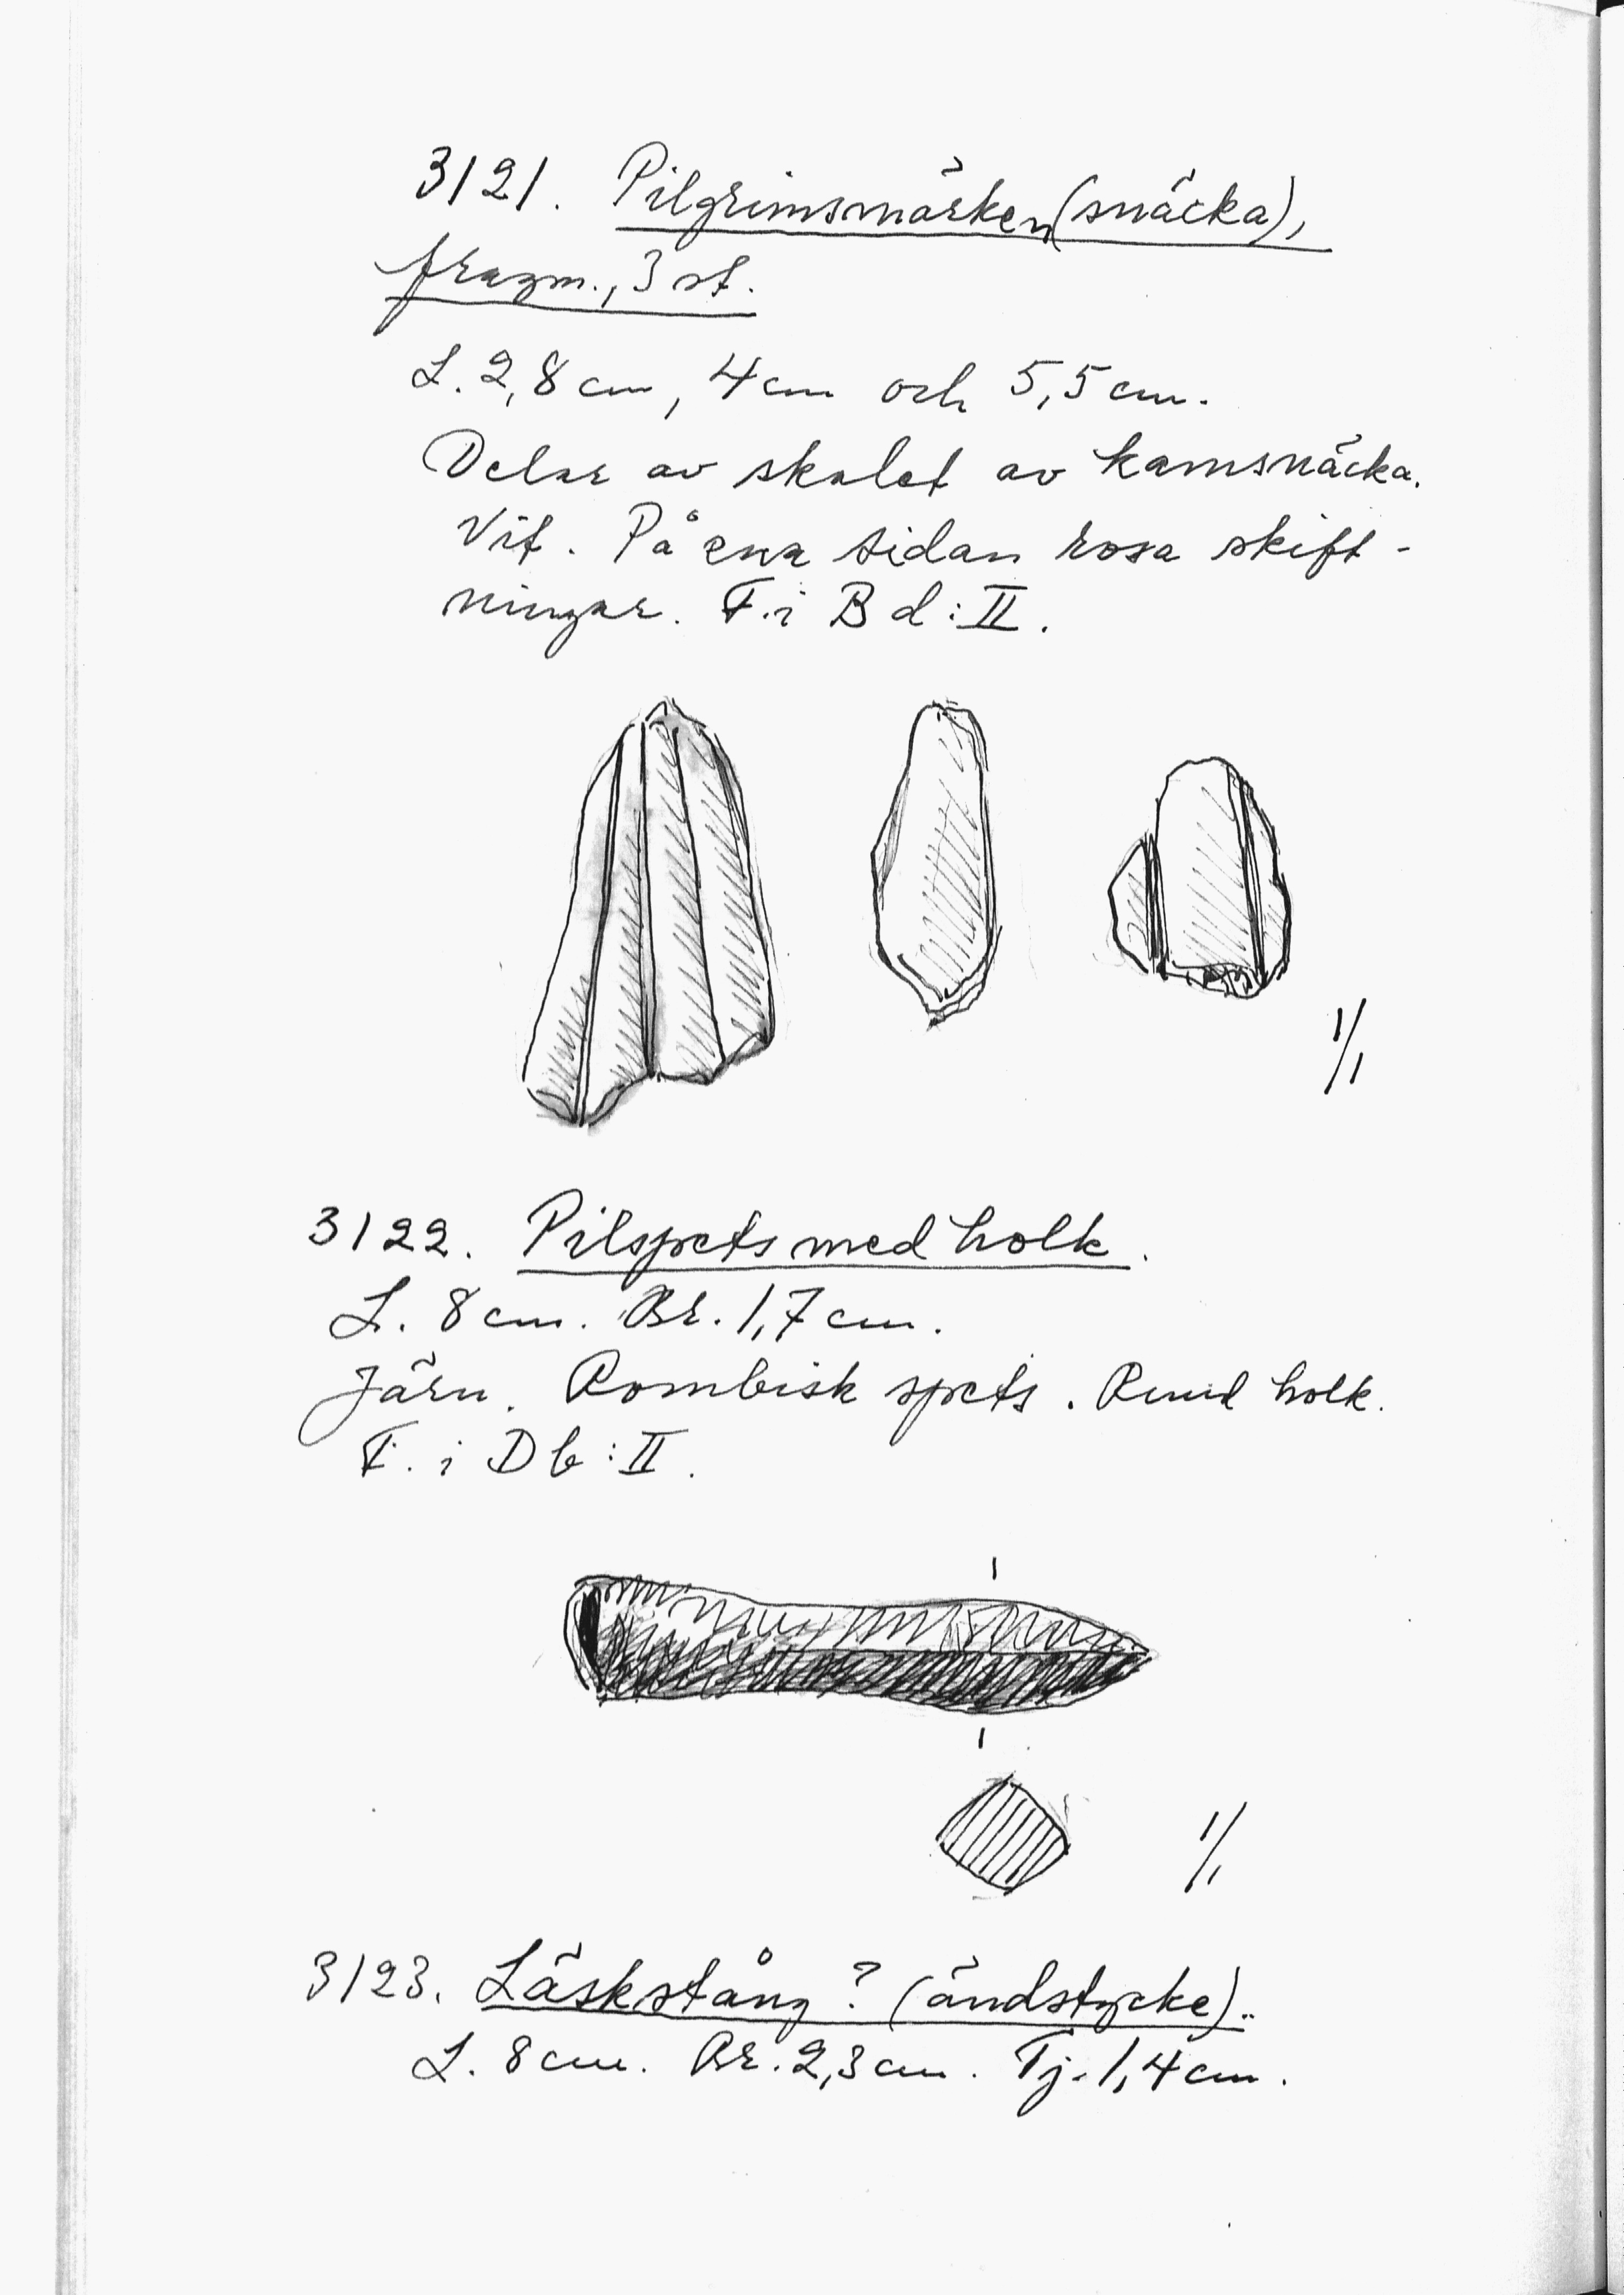 3121. Pilgrimsmärken (snäcka),
fragm., 3 st.
L. 2,8 cm, 4 cm och 5,5 cm.
Delar av skalet av kamsnäcka.
Vit. På ena sidan rosa skift-
ningar. F. i Bd:II.
1/1
3122. Pilspets med holk.
L. 8 cm. Br. 1,7 cm.
Järn. Rombisk spets. Rund holk.
F. i Db:II.
1/1
3123. Läskstång? (ändstycke)..
L. 8 cm. Br. 2,3 cm. Tj. 1,4 cm.